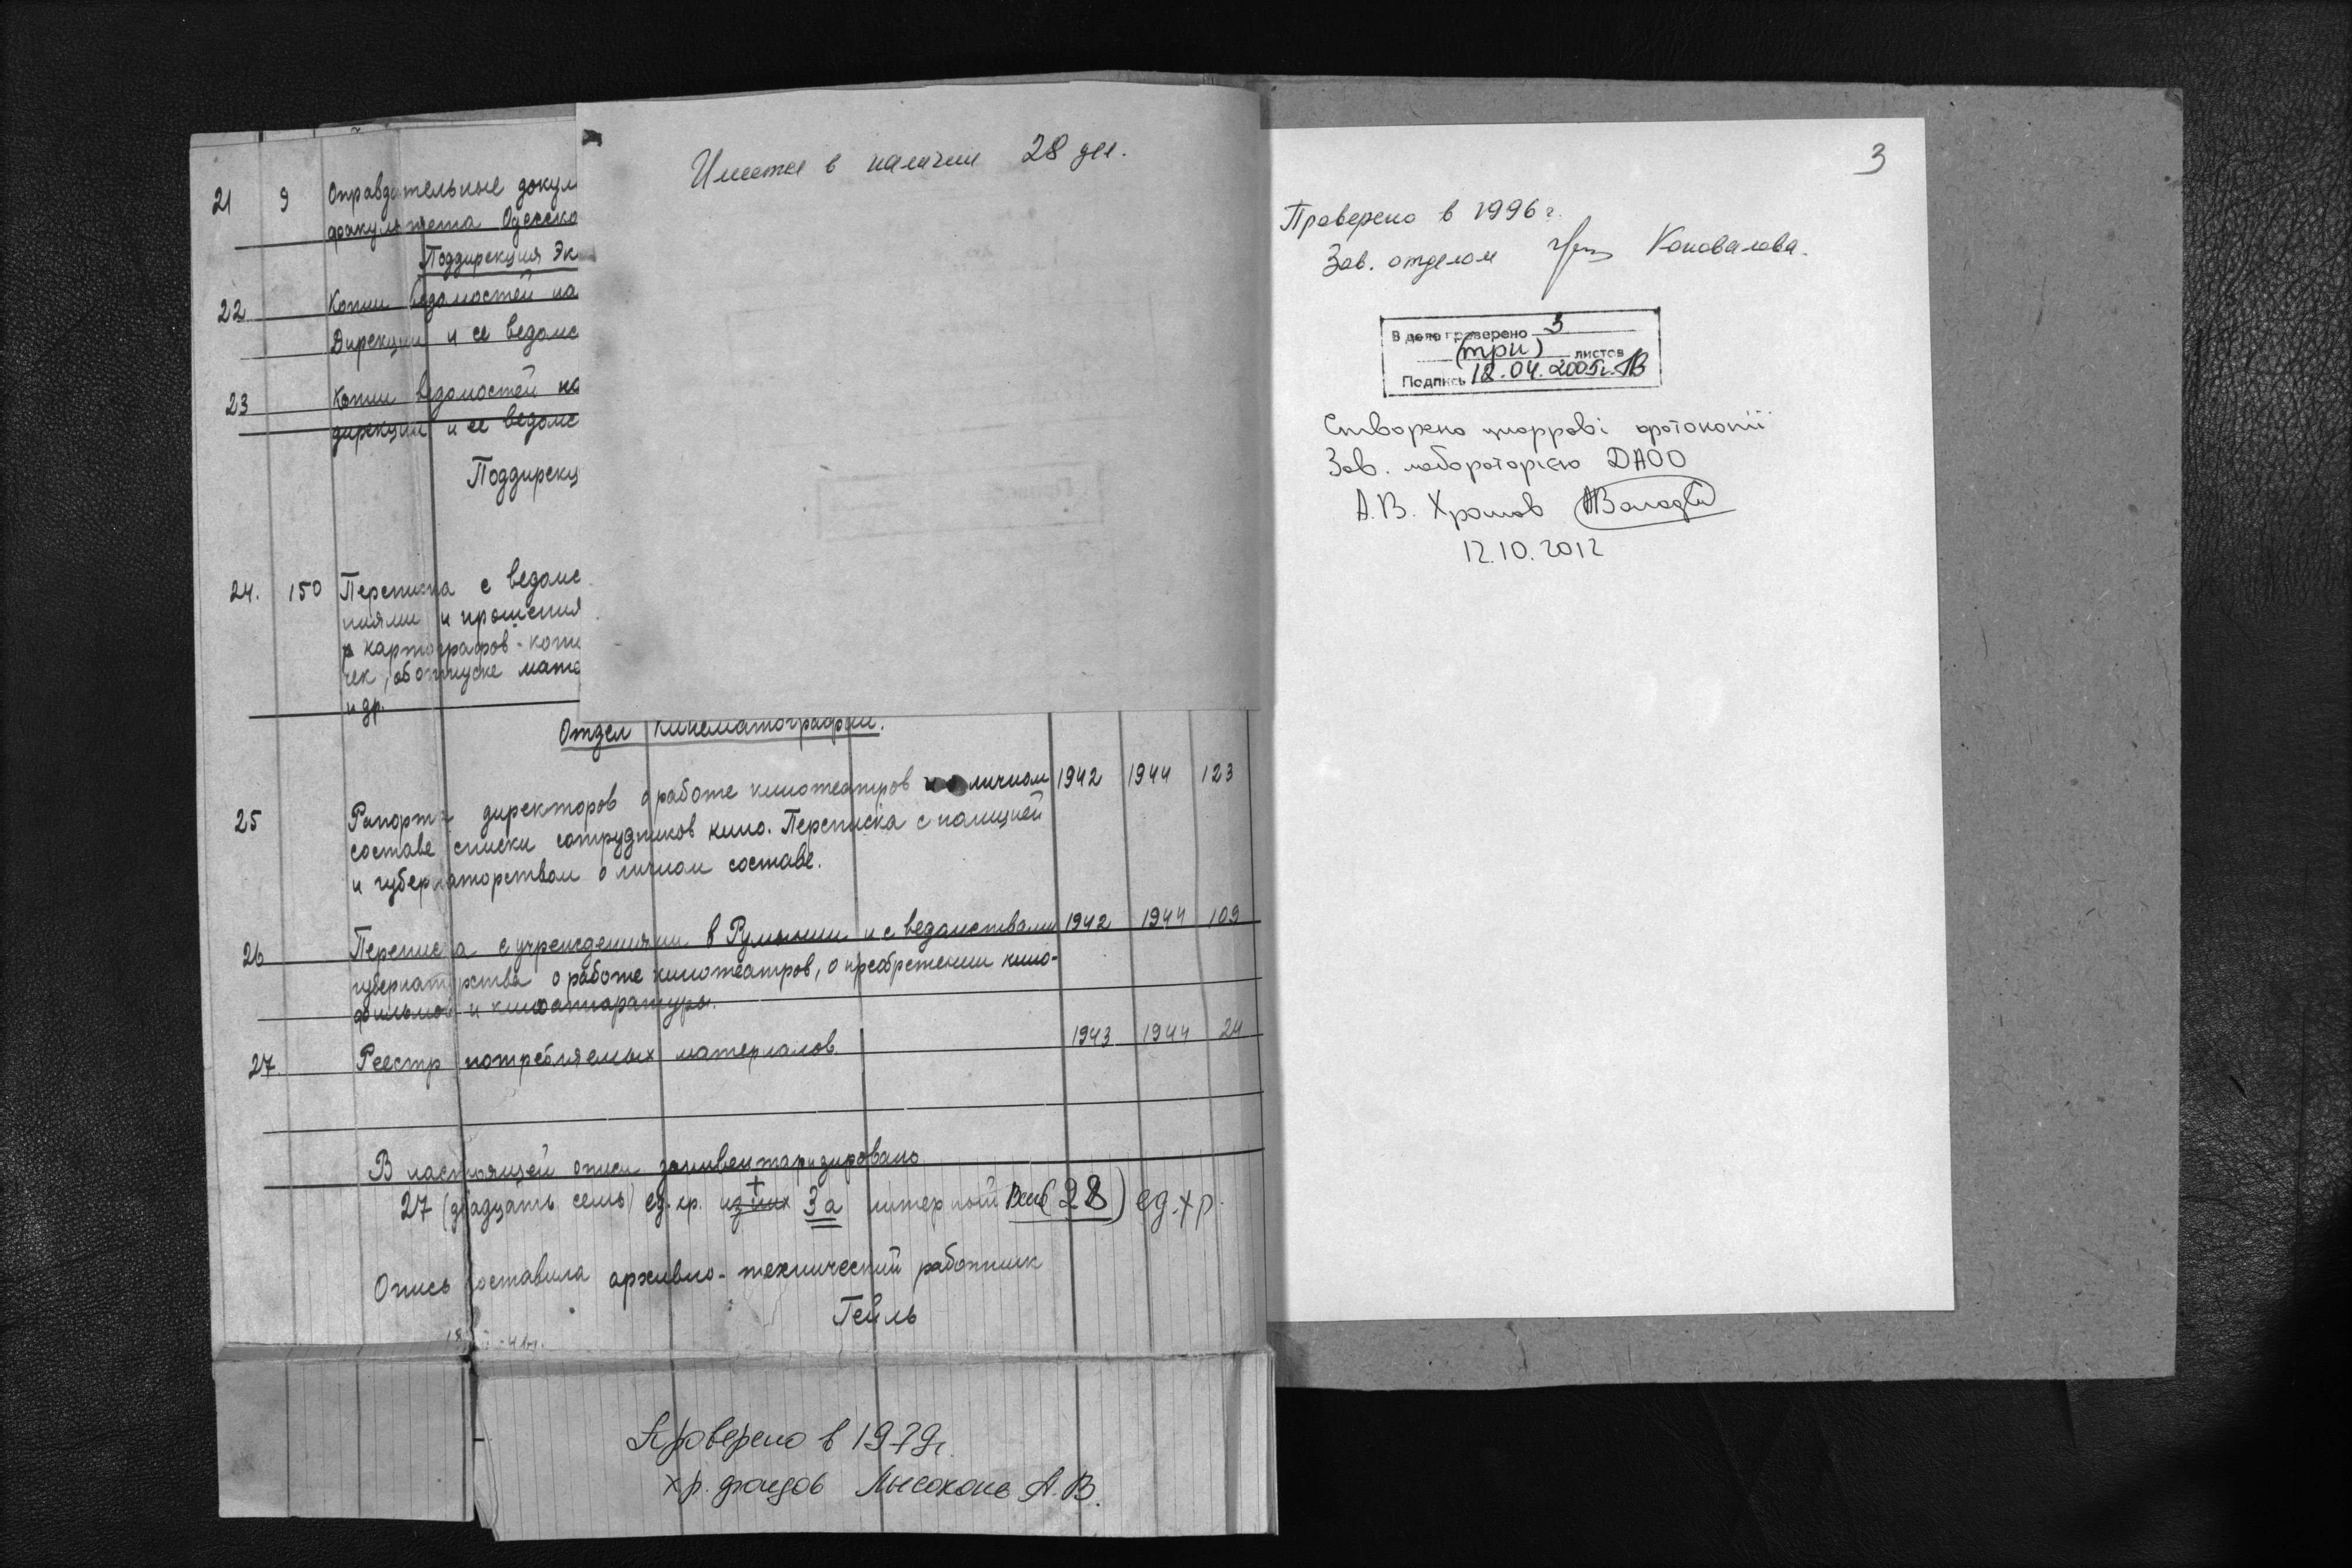 21 9 Оправдательные докум
факультета Одесско
Поддирекция Эк
22 Копии ведомостей на
Дирекции и ее ведомс
23 Копии ведомостей на
дирекции и ее ведомс
Поддирекц
24. 150 Переписка с ведомс
ниями и прошения
картографов-копи
чек, об отпуске мате
и др.
Имеется в наличии 28 дел.
Отдел кинематографии.
25 Рапорты директоров о работе кинотеатров и о личном 1942 1944 123
составе списки сотрудников кино. Переписка с полицией
и губернаторством о личном составе.
26 Переписка с учреждениями в Румынии и с ведомствами 1942 1944 109
губернаторства о работе кинотеатров, о преобретении кино-
фильмов и киноаппаратуры.
27. Реестр потребляемых материалов. 1943 1944 24
В настоящей описи заинвентаризировано
27 (двадцать семь) ед. хр. из них + 3а литерный Всего (28) ед. хр.
Опись составила архивно-технический работник
Гейль
Проверено в 1979г.
хр. фондов Лысоконь А.В.
3
Проверено в 1996 г.
Зав. отделом Коновалова.
В деле проверено 3
(три) листов
Подпись 18.04.2005г.
Створено цифрові фотокопії
Зав. лабораторією ДАОО
А.В. Храмов
12.10.2012